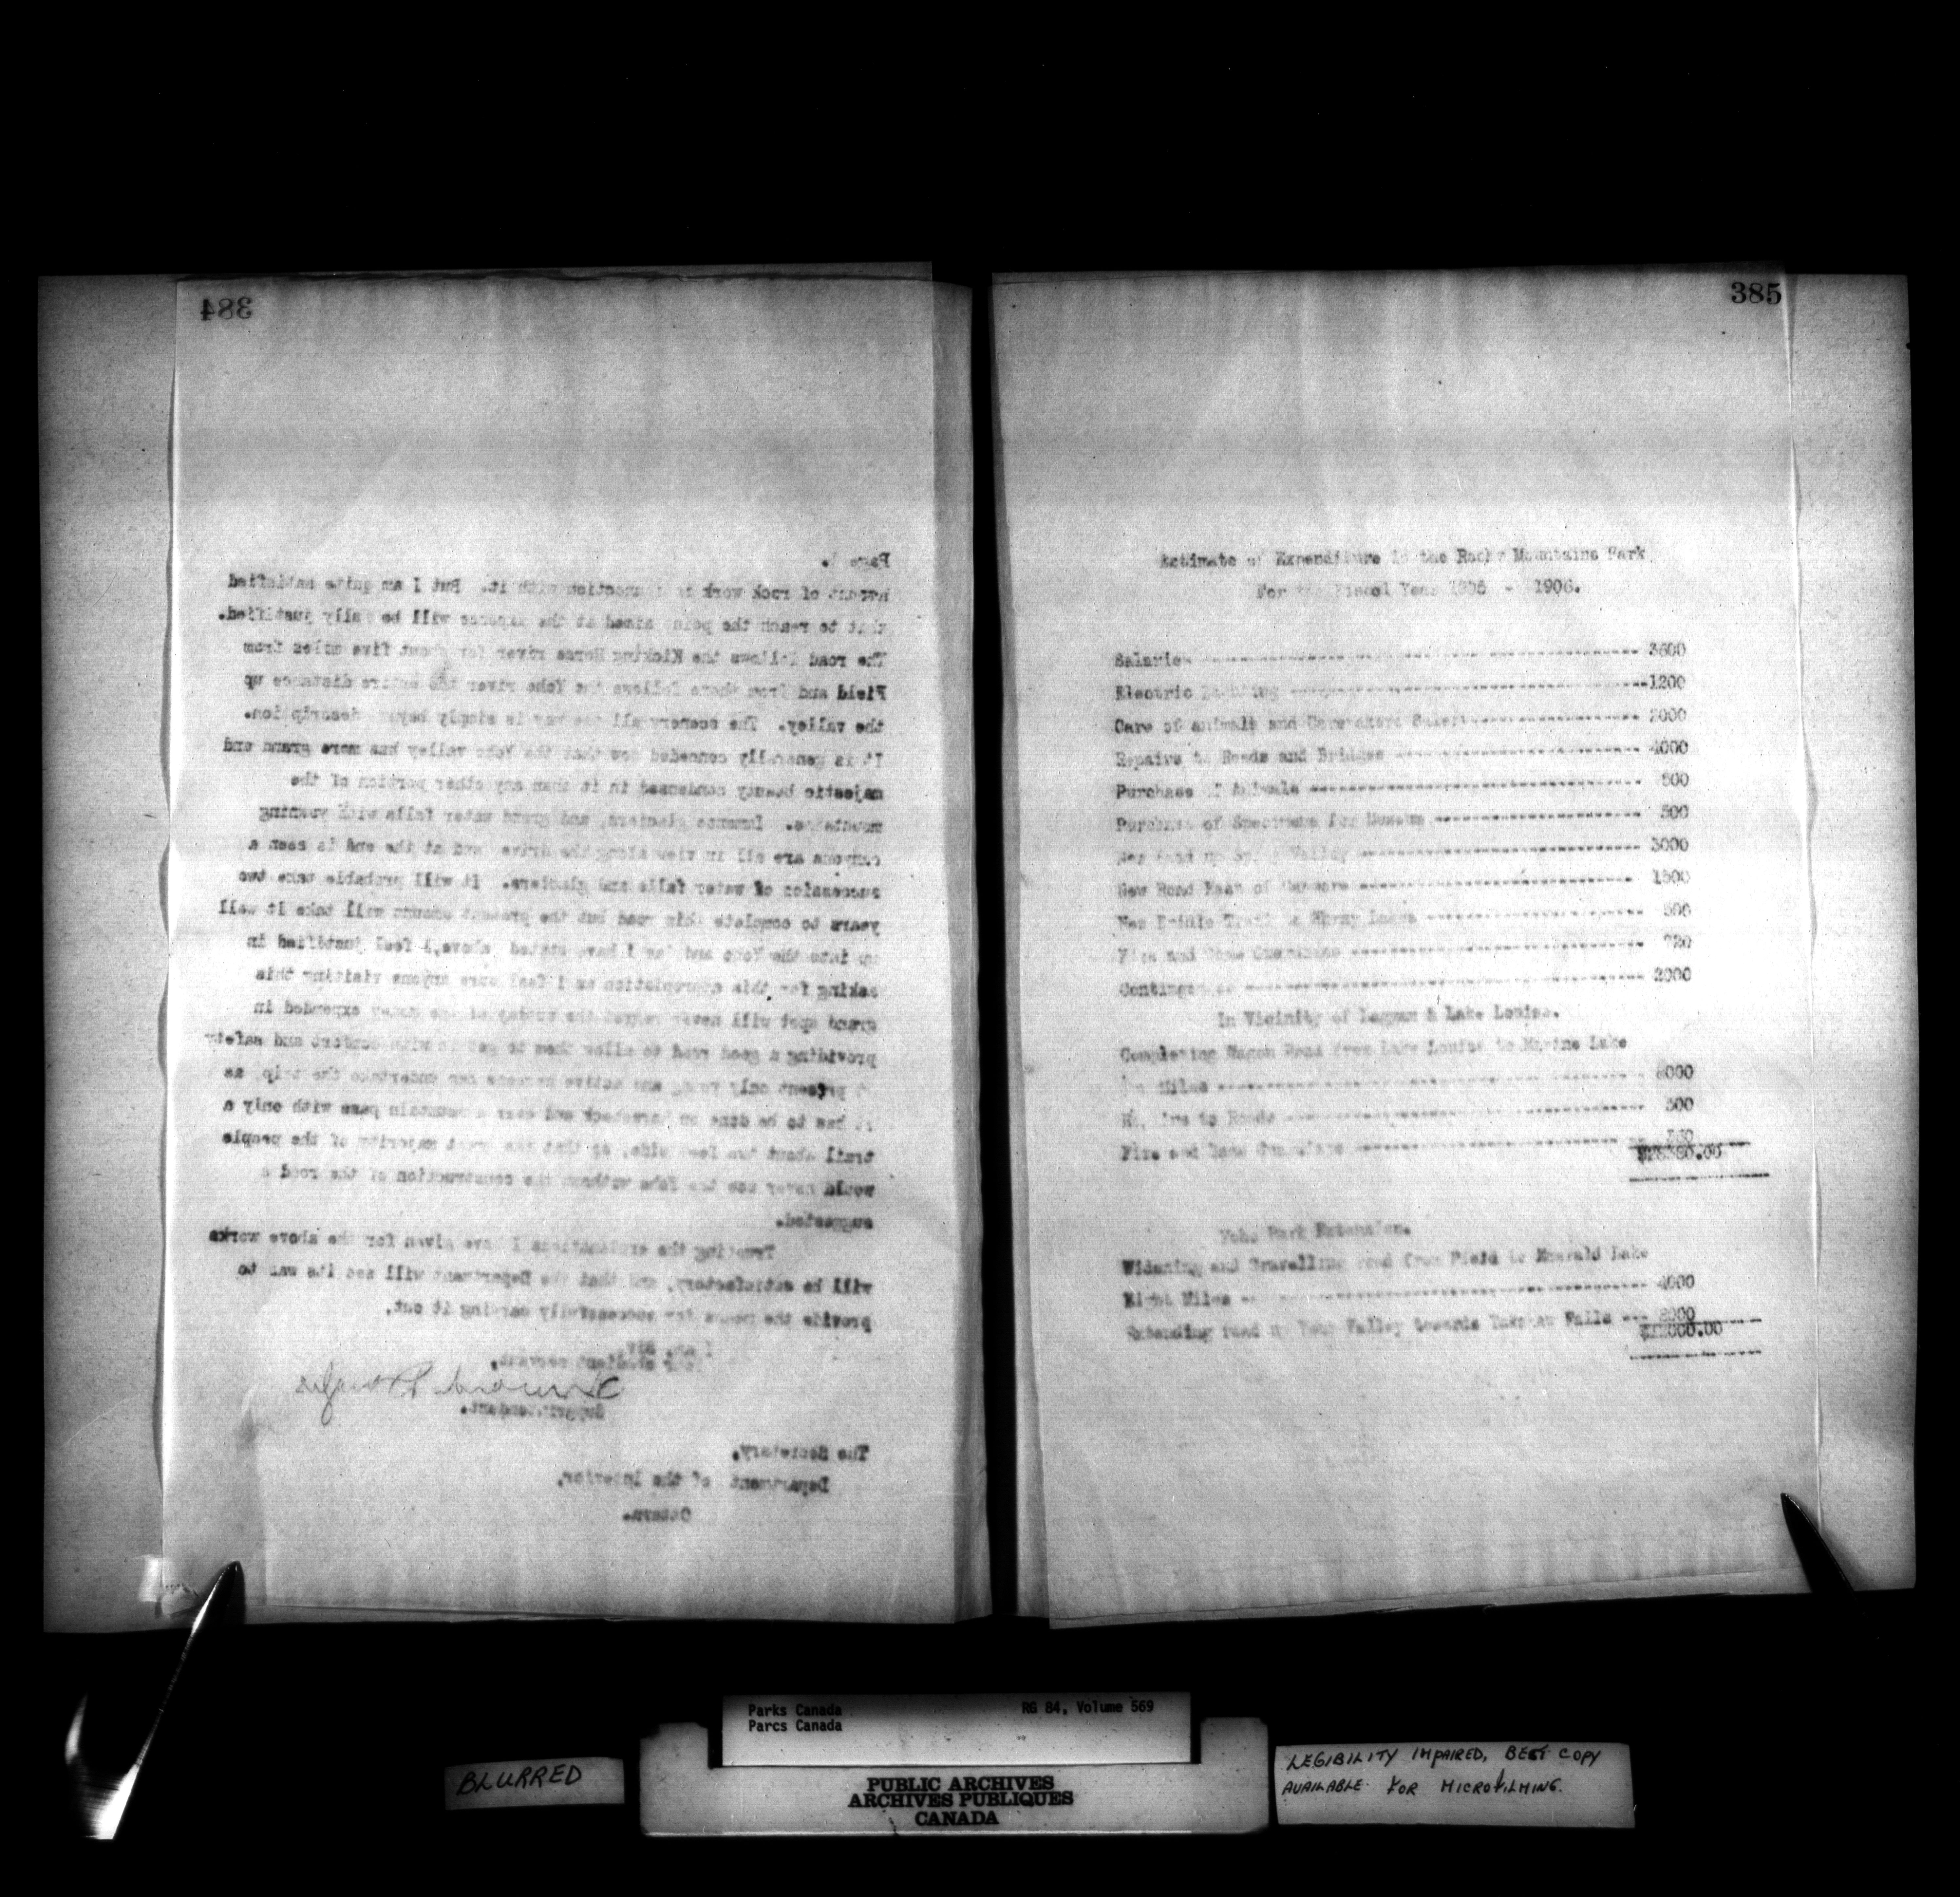 384
Page
of rock work in connection with it. But I am quite satisfied
that to reach the point aimed at the expense will be fully justified.
The road follows the Kicking Horse river for about five miles from
Field and from there follows the Yoho river the entire distance up
the valley. The scenery all the way is simply beyond description.
It is generally conceded now that the Yoho valley has more grand and
majestic beauty condensed in it than any other portion of the
mountains. Immense glaciers, and grand water falls with yawning
canyons are all in view along the drive and at the end is seen a
succession of water falls and glaciers. It will probable take two
years to complete this road but the present amount will take it well
up into the Yoho and as I have stated above, I feel justified in
asking for this appropiation as I feel sure anyone visiting this
grand spot will never regret the money expended in
providing a good road to allow them to get in with comfort and safety
present only young and active persons can undertake the trip, as
it has to be done on horseback and over a mountain pass with only a
trail about two feet wide, so that the great majority of the people
would never see the Yoho without the construction of the road
suggested.
Trusting the explanations I have given for the above works
will be satisfactory, and that the Department will see its way to
provide the means for successfully carrying it out,
I am, Sir,
Your obedient servant,
Superintendent.
The Secretary,
Department of the Interior,
Ottawa.
385
Estimate of Expenditure in the Rocky Mountains Park
For the Fiscal Year 1905 - 1906.
Salaries 3600
Electric Lighting 1200
Care of animals and Caretakers Salary 2000
Repairs to Roads and Bridges 4000
Purchase of Animals
Purchase of Specimens for Museum 500
New Road up Spray Valley 3000
New Road East of Canmore 1500
New Bridle Trail Spray Lakes 500
Fire and Game Guardians 720
Contingencies 2000
In Vicinity of Laggan & Lake Louise.
Completing Wagon Road from Lake Louise to Moraine Lake
Miles
Repairs to Roads
Fire and Game Guardians
Yoho Park Extension.
Widening and Gravelling road from Field to Emerald Lake
Eight Miles 4000
Extending road up Yoho Valley towards Takakaw Falls
Parks Canada RG 84, Volume 569
Parcs Canada
BLURRED
PUBLIC ARCHIVES
ARCHIVES PUBLIQUES
CANADA
LEGIBILITY IMPAIRED, BEST COPY
AVAILABLE FOR MICROFILMING.